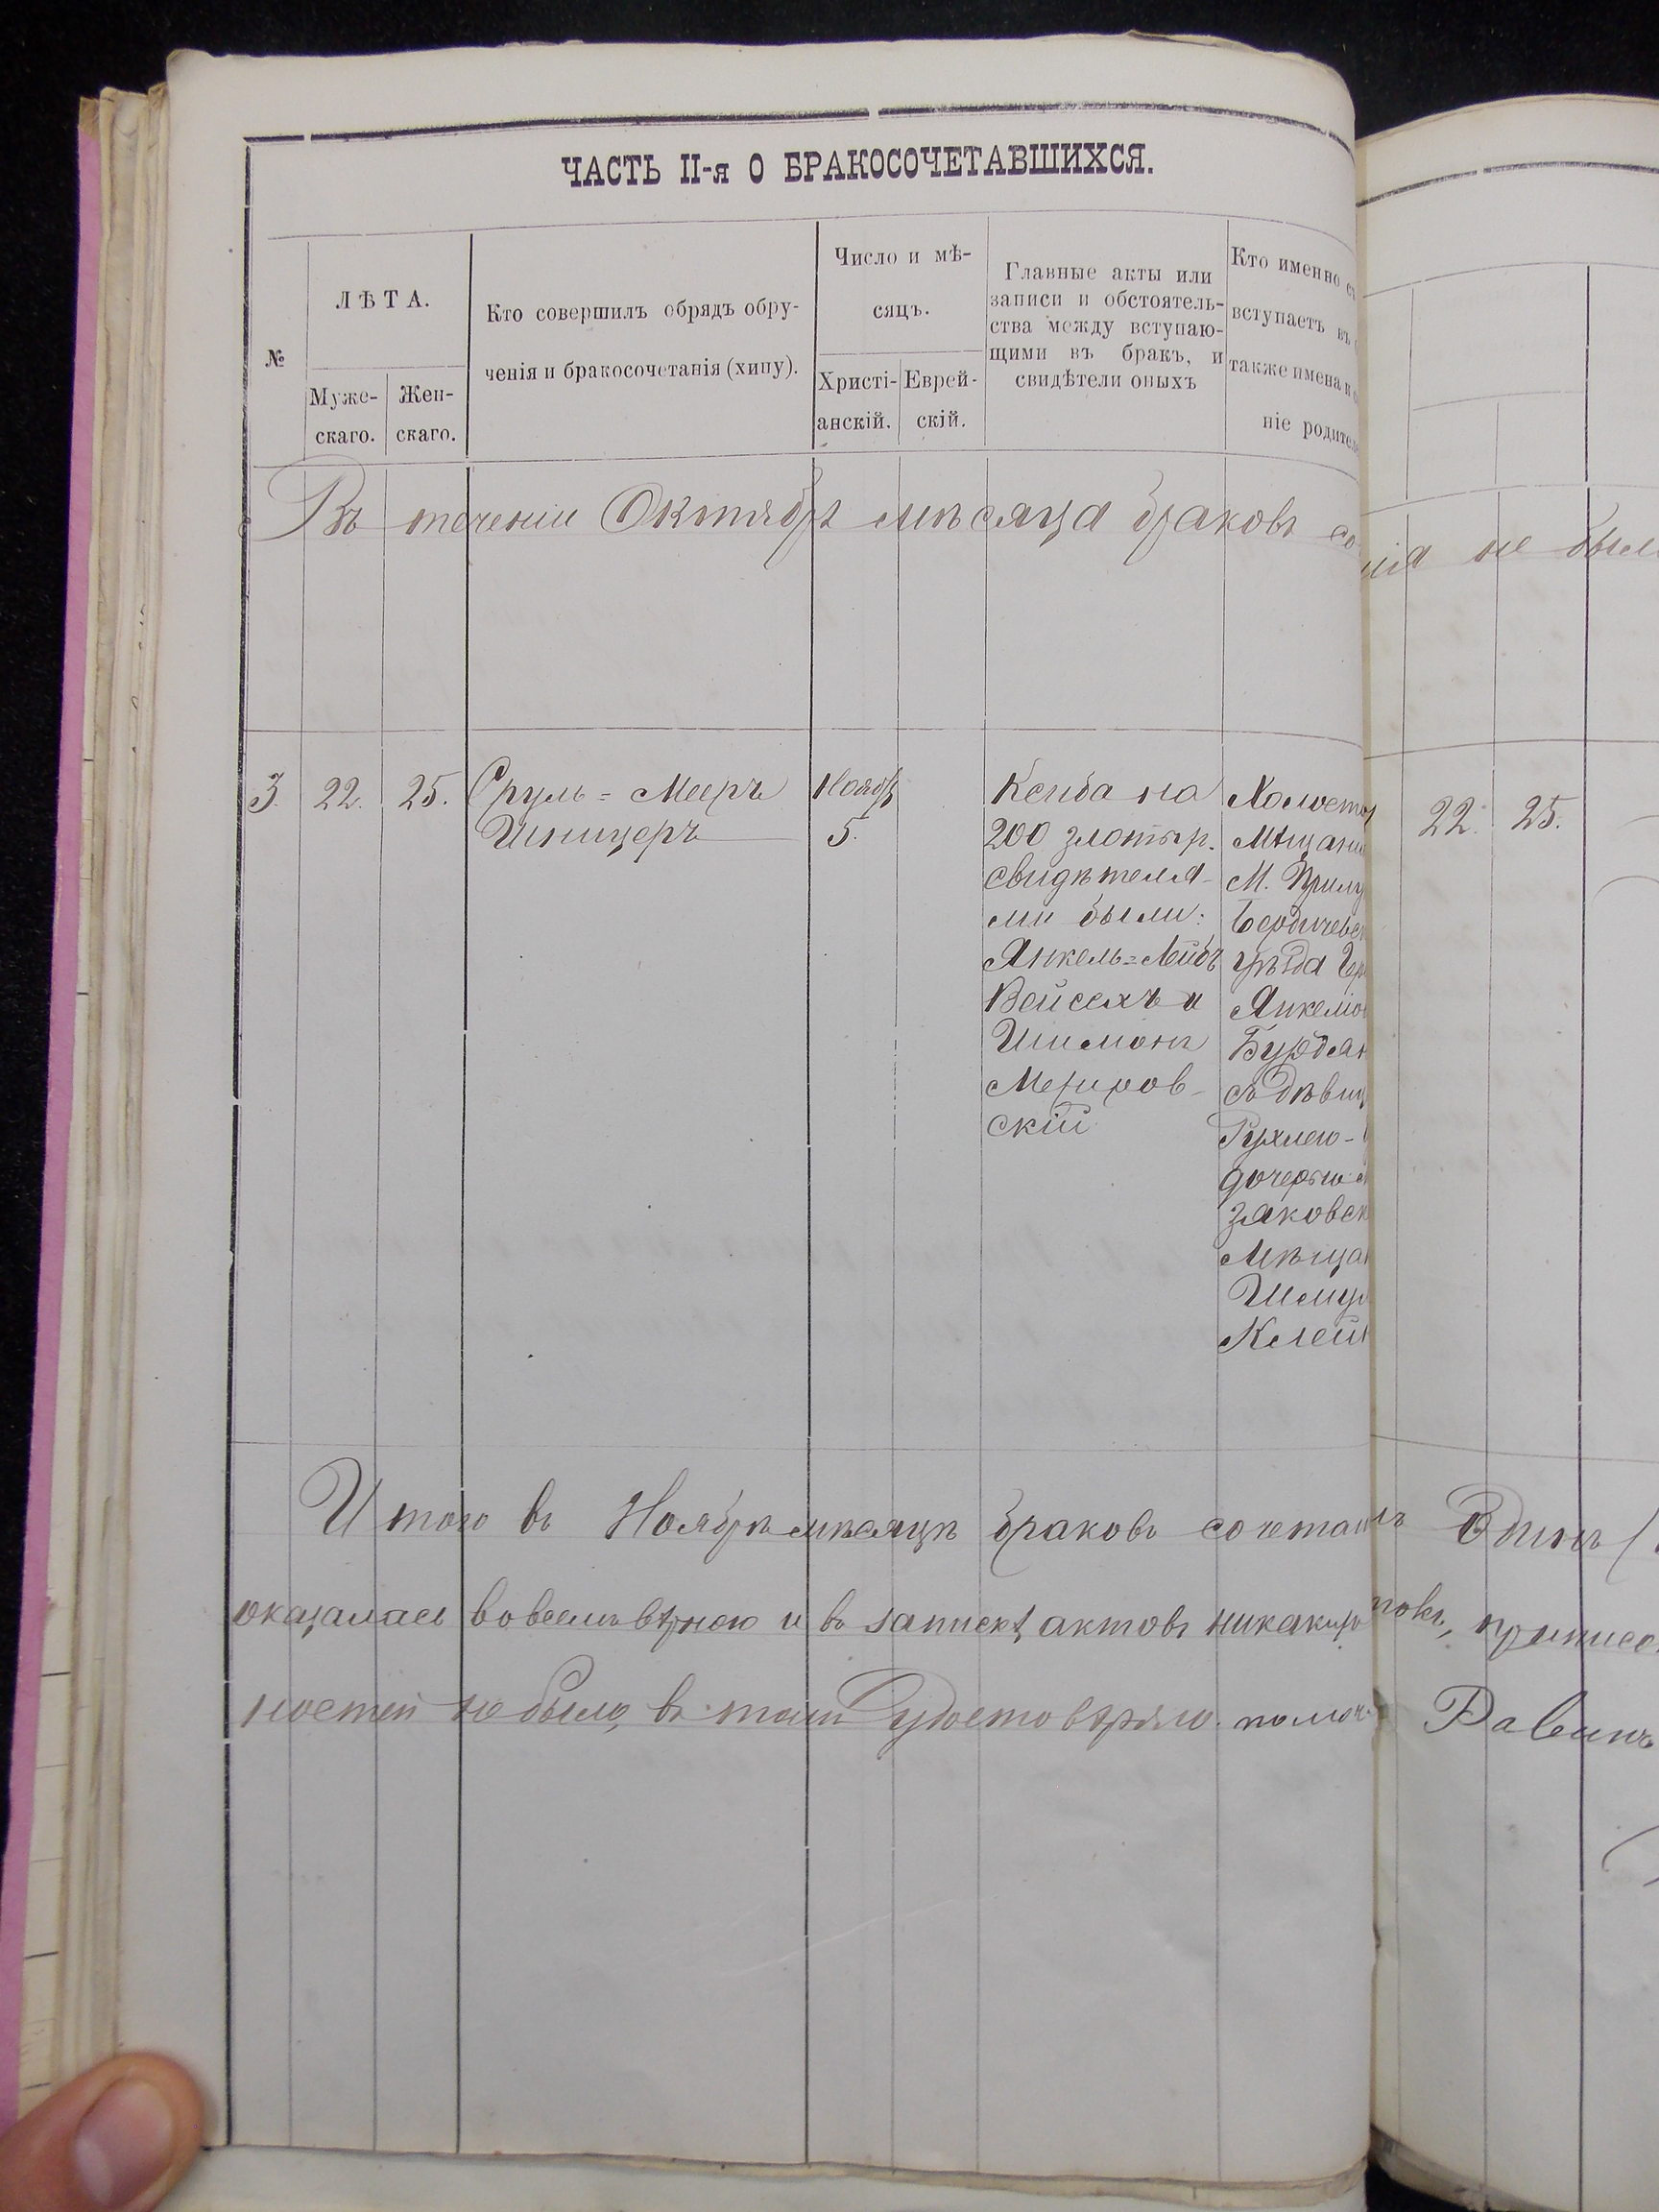 ЧАСТЬ II-я О БРАКОСОЧЕТАВШИХСЯ.
№
ЛѢТА.
Муже-
скаго.
Жен-
скаго.
Кто совершилъ обрядъ обру-
ченія и бракосочетанія (хипу).
Число и мѣ-
сяцъ.
Христі-
анскій.
Еврей-
скій.
Главные акты или
записи и обстоятель-
ства между вступаю-
щими въ бракъ, и
свидѣтели оныхъ
Кто именно съ
вступаетъ въ
также имена и
ніе родител
Въ теченіи Октябрѣ мѣсяца браковъ со
нія не был
3. 22. 25. Сруль=Мееръ
Шницеръ
Ноябр
5.
Кенба на
200 злотыр.
свидѣтеля-
ми были:
Янкель=Лейбъ
Вейсехъ и
Шимонъ
Межиров-
скій
Холост
Мѣщани
М. Прилу
Бердичевс
уѣзда Гер
Янкелю
Бурдан
съ дѣвиц
Рухлею-
дочерью
зяковск
Мѣща
Шмул
Клейн
22. 25.
Итого въ Ноябрѣ мѣсяцѣ браковъ сочетан
оказалась вовсемъ вѣрною и въ запискѣ актовъ никаких
ностей не было, въ томъ удостовѣряю. помощ
нъ Одинъ (
повъ, приписо
Равинъ